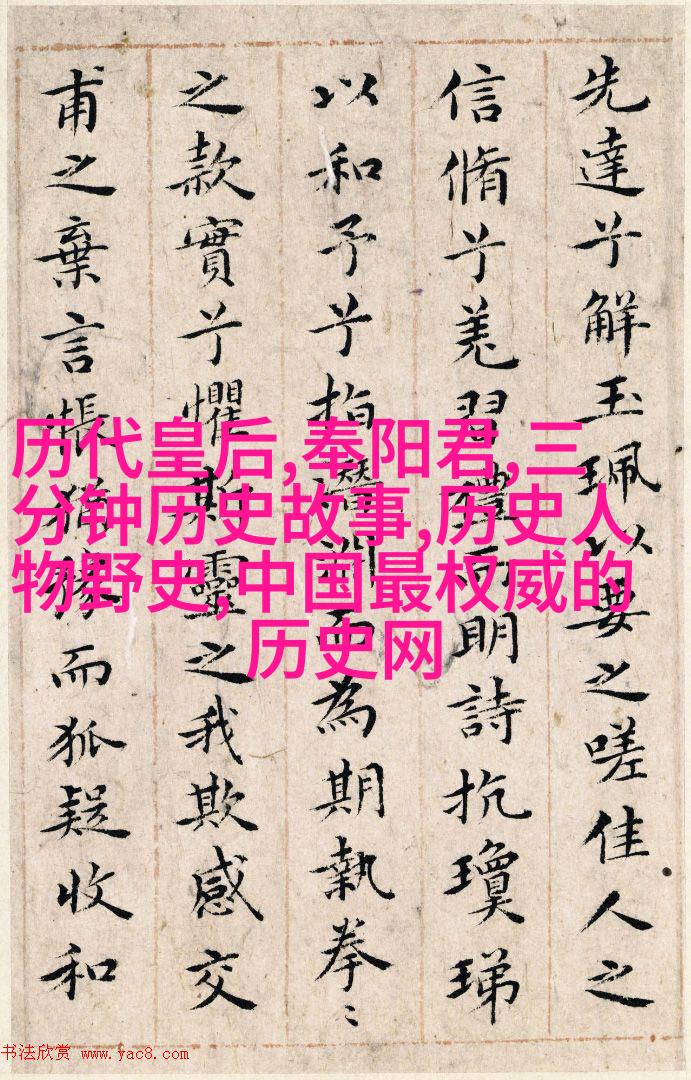 先達兮解玉珮以要之嗟佳人之
信脩兮羌習禮而明詩抗瓊珶
以和予兮指潛淵而為期執拳〻
之款實兮懼斯靈之我欺感交
甫之棄言悵猶豫而狐疑收和
历代皇后,奉阳君,三
分钟历史故事,历史人
物野史,中国最权威的
历史网
书法欣赏 www.yac8.com